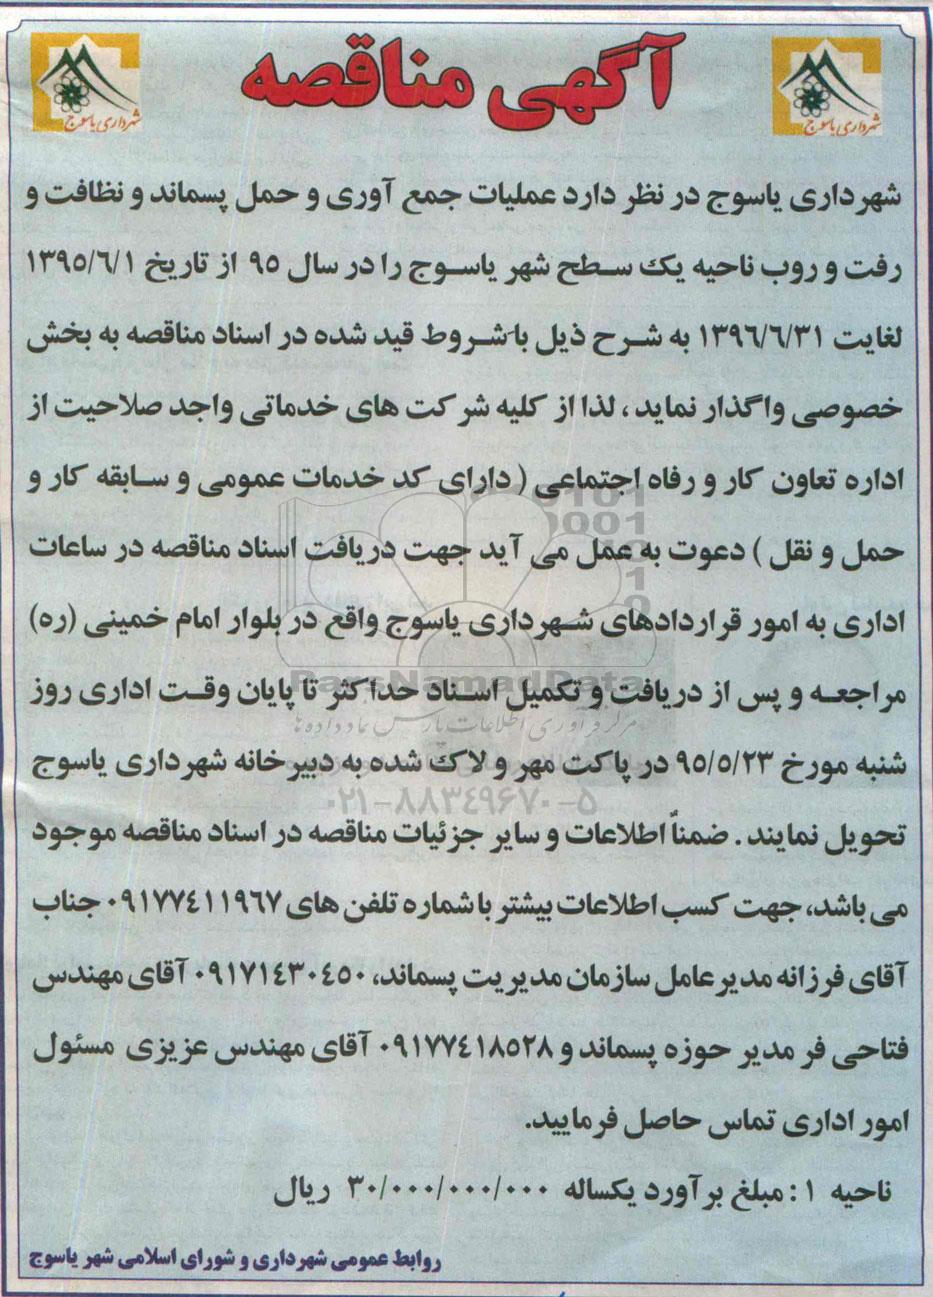 آگهی مناقصه
شهرداری یاسوج
شهرداری یاسوج
شهرداری یاسوج در نظر دارد عملیات جمع آوری و حمل پسماند و نظافت و
رفت و روب ناحیه یک سطح شهر یاسوج را در سال ۹۵ از تاریخ ۱۳۹۵/۶/۱
لغایت ۱۳۹۶/۶/۳۱ به شرح ذیل با شروط قید شده در اسناد مناقصه به بخش
خصوصی واگذار نماید ، لذا از کلیه شرکت های خدماتی واجد صلاحیت از
اداره تعاون کار و رفاه اجتماعی ( دارای کد خدمات عمومی و سابقه کار و
حمل و نقل ) دعوت به عمل می آید جهت دریافت اسناد مناقصه در ساعات
اداری به امور قراردادهای شهرداری یاسوج واقع در بلوار امام خمینی (ره)
مراجعه و پس از دریافت و تکمیل اسناد حداکثر تا پایان وقت اداری روز
شنبه مورخ ۹۵/۵/۲۳ در پاکت مهر و لاک شده به دبیرخانه شهرداری یاسوج
تحویل نمایند . ضمناً اطلاعات و سایر جزئیات مناقصه در اسناد مناقصه موجود
می باشد، جهت کسب اطلاعات بیشتر با شماره تلفن های ۰۹۱۷۷۴۱۱۹۶۷ جناب
آقای فرزانه مدیر عامل سازمان مدیریت پسماند، ۰۹۱۷۱۴۳۰۴۵۰ آقای مهندس
فتاحی فر مدیر حوزه پسماند و ۰۹۱۷۷۴۱۸۵۲۸ آقای مهندس عزیزی مسئول
امور اداری تماس حاصل فرمایید.
ناحیه ۱ : مبلغ برآورد یکساله ۳۰/۰۰۰/۰۰۰/۰۰۰ ریال
روابط عمومی شهرداری و شورای اسلامی شهر یاسوج
ParsNamadData
مرکز فرآوری اطلاعات پارس نماد داده ها
۰۲۱-۸۸۳۴۹۶۷۰-۵